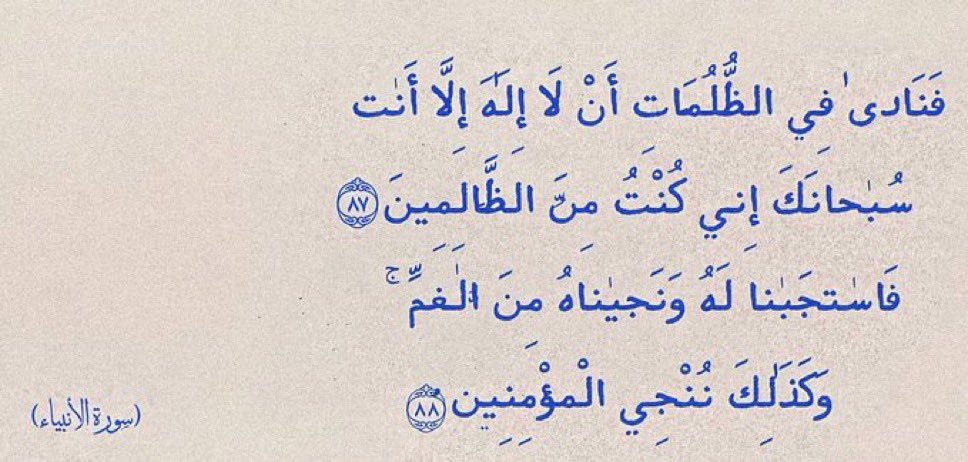 فَنَادىٰ فِي الظُّلُمَاتِ أَنْ لَا إِلَٰهَ إِلَّا أَنْت
سُبْحانَكَ إِني كُنْتُ مِنَ الظَّالِمِينَ ٨٧
فَاسْتجَبْنا لَهُ وَنَجيْناهُ مِنَ الْغمِّ ۚ
وَكَذَٰلِكَ نُنْجِي الْمؤْمِنِين ٨٨
(سورة الأنبياء)